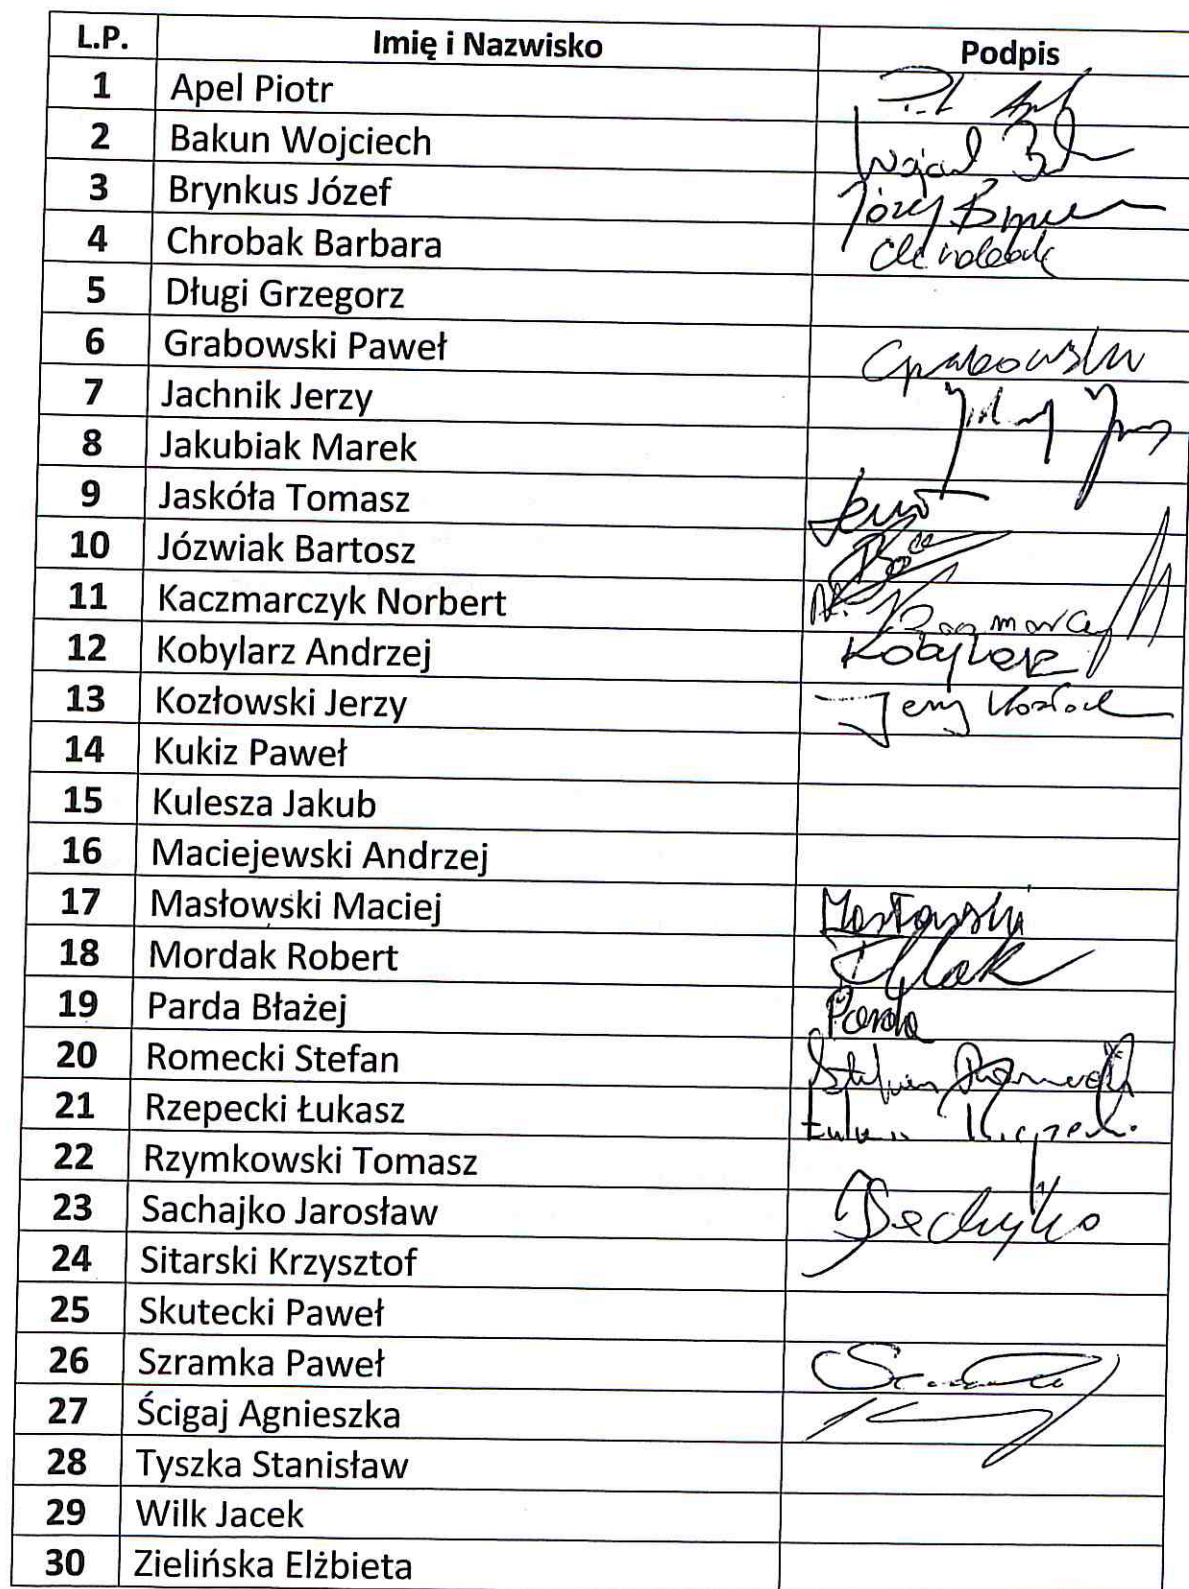 L.P. Imię i Nazwisko Podpis
1 Apel Piotr
2 Bakun Wojciech
3 Brynkus Józef Józef
4 Chrobak Barbara
5 Długi Grzegorz
6 Grabowski Paweł Grabowski
7 Jachnik Jerzy
8 Jakubiak Marek
9 Jaskóła Tomasz
10 Józwiak Bartosz
11 Kaczmarczyk Norbert
12 Kobylarz Andrzej Kobylarz
13 Kozłowski Jerzy Jerzy
14 Kukiz Paweł
15 Kulesza Jakub
16 Maciejewski Andrzej
17 Masłowski Maciej Masłowski
18 Mordak Robert
19 Parda Błażej Parda
20 Romecki Stefan Stefan Romecki
21 Rzepecki Łukasz
22 Rzymkowski Tomasz
23 Sachajko Jarosław Sachajko
24 Sitarski Krzysztof
25 Skutecki Paweł
26 Szramka Paweł
27 Ścigaj Agnieszka
28 Tyszka Stanisław
29 Wilk Jacek
30 Zielińska Elżbieta